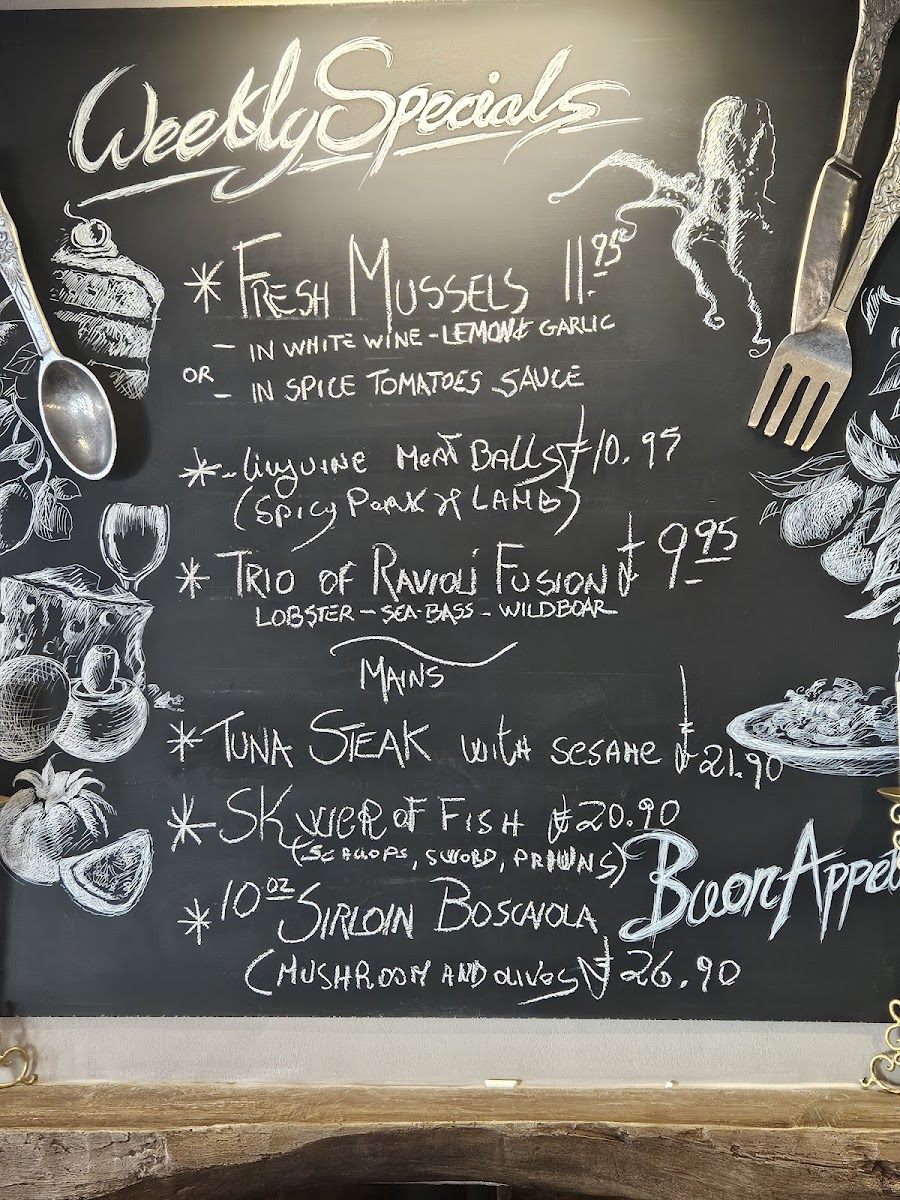 Weekly Specials
* FRESH MUSSELS 11.95
- IN WHITE WINE - LEMON & GARLIC
OR - IN SPICE TOMATOES SAUCE
* - linguine MEAT BALLS £10.95
(Spicy Pork & LAMB)
* TRIO OF RAVIOLI FUSION £ 9.95
LOBSTER - SEA-BASS - WILDBOAR
MAINS
* TUNA STEAK with SESAME £21.90
* SKWER OF FISH £20.90
(SCALLOPS, SWORD, PRAWNS)
Buon Appet
* 10 oz SIRLOIN BOSCAIOLA
(MUSHROOM AND OLIVES) £26.90